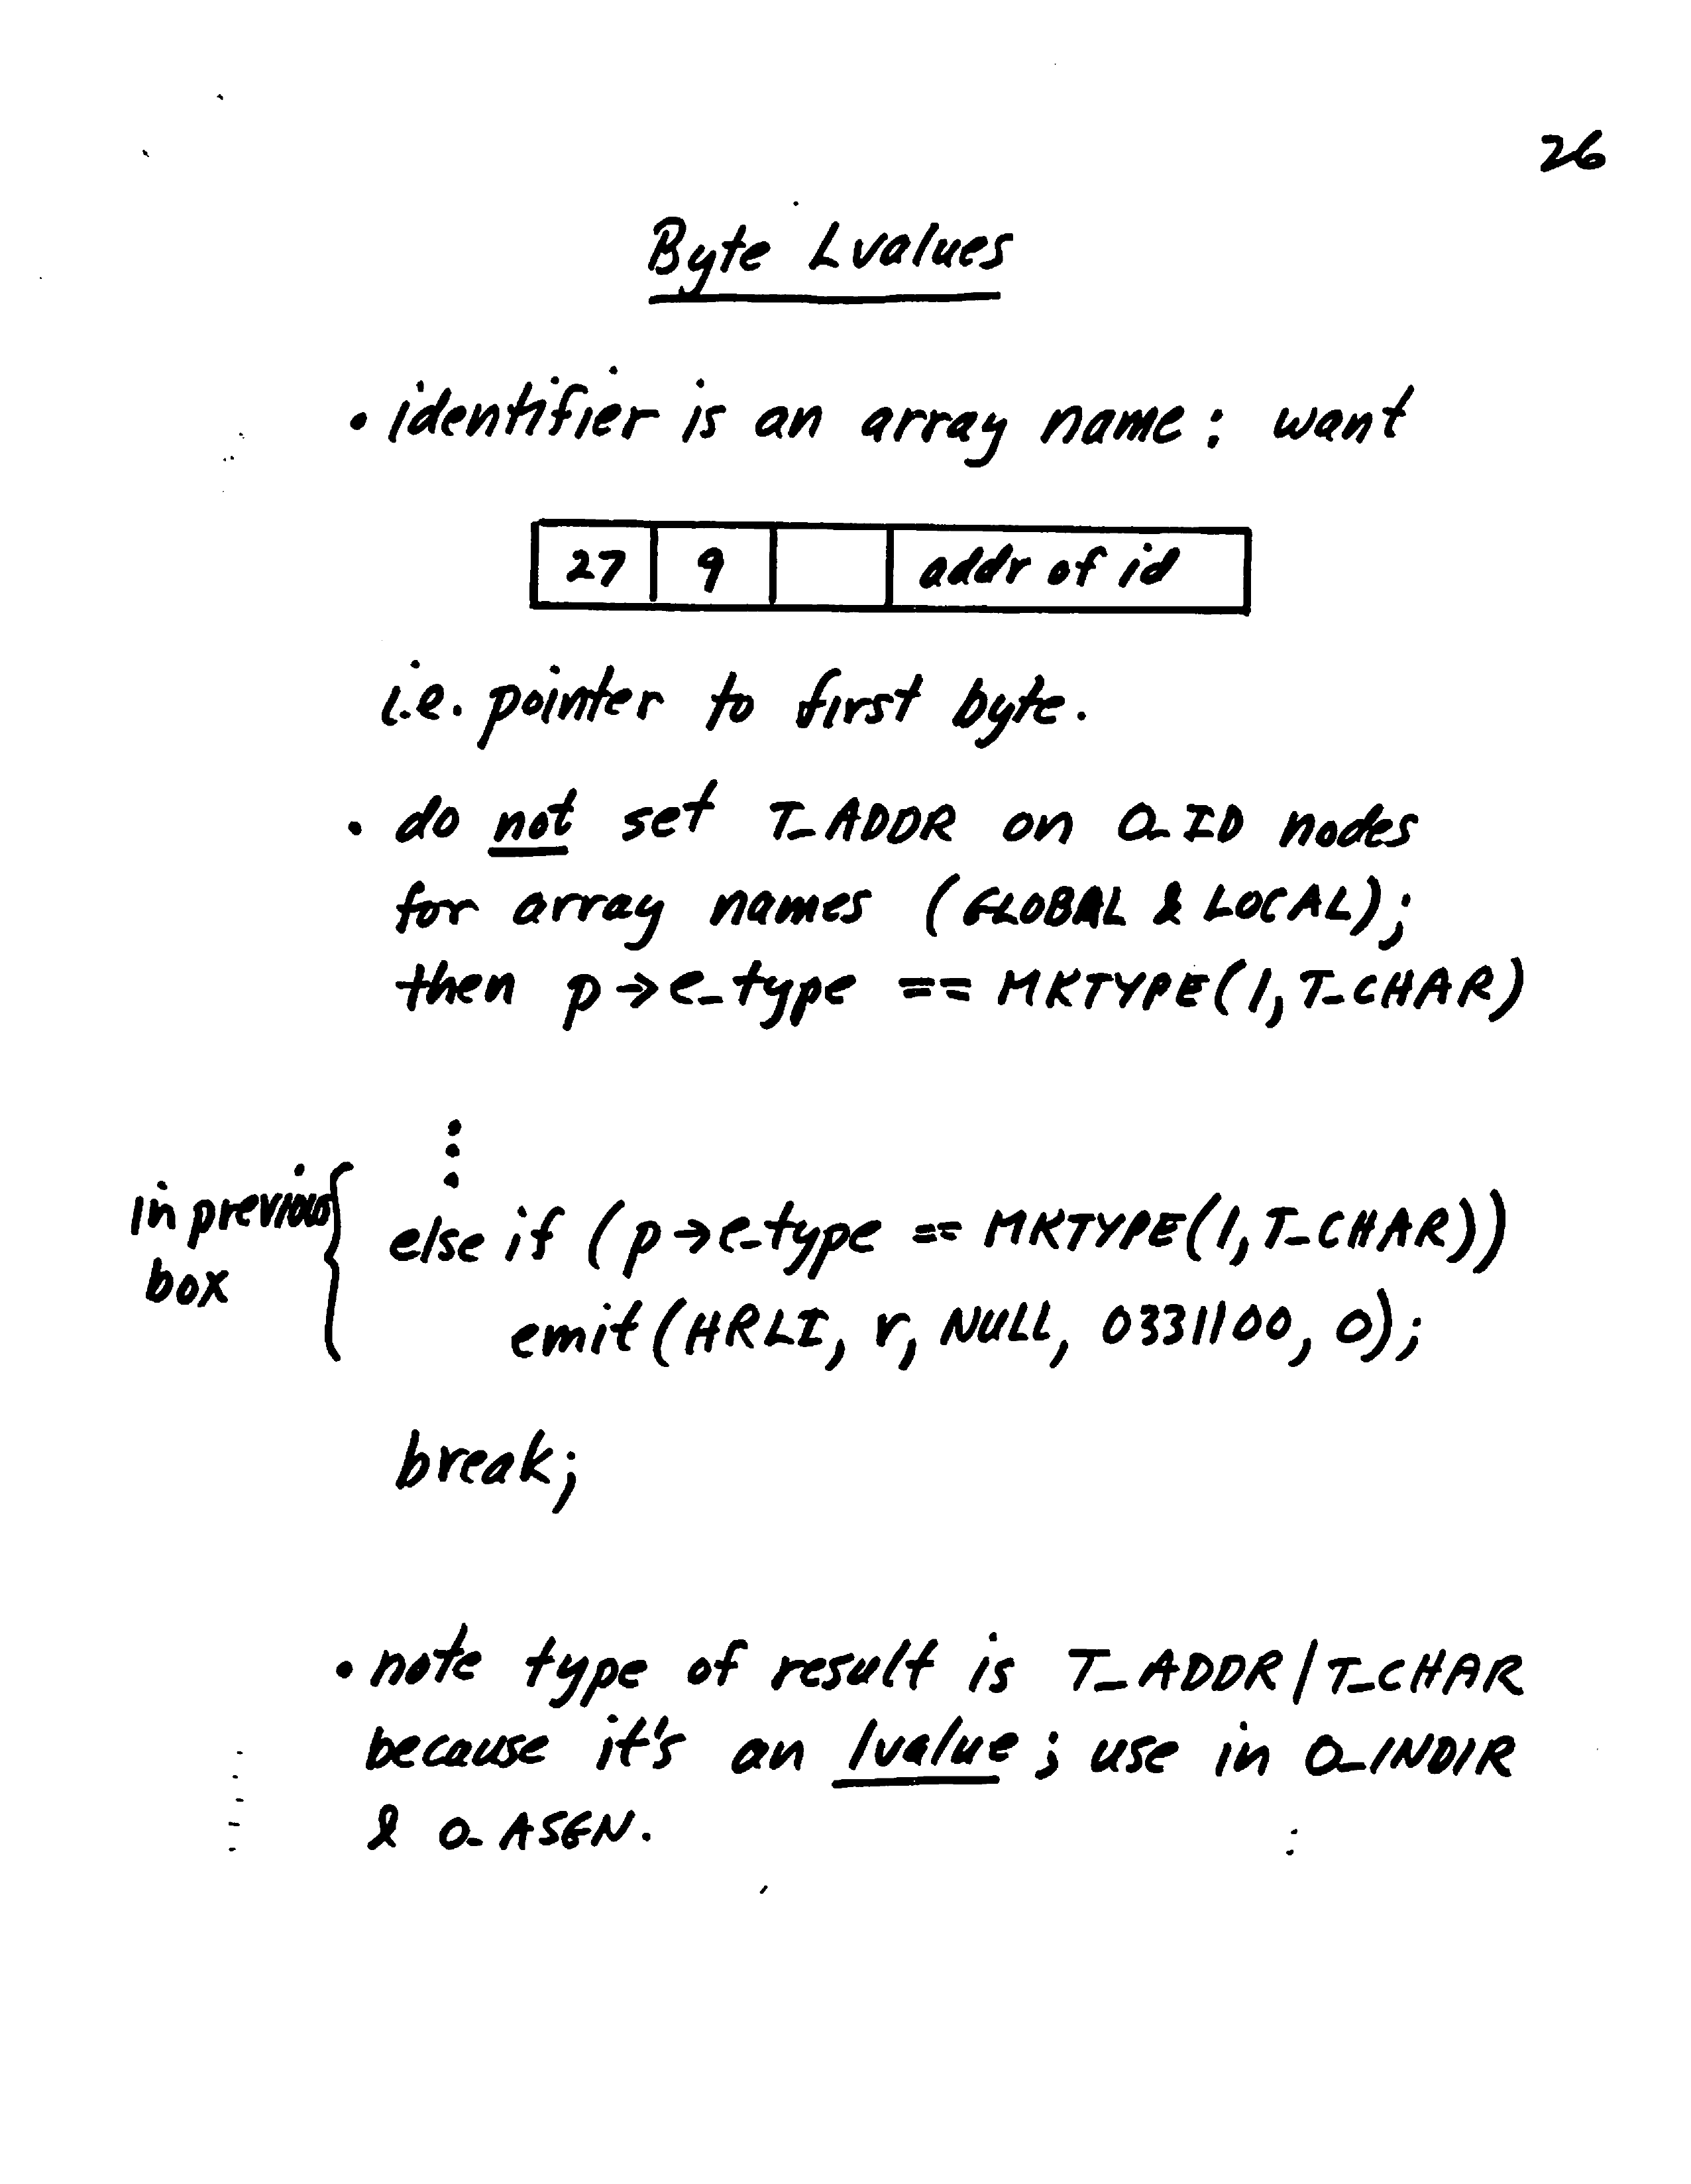 26
Byte Lvalues
• identifier is an array name: want
27 9 addr of id
i.e. pointer to first byte.
• do not set T_ADDR on O_ID nodes
for array names (GLOBAL & LOCAL);
then p→e_type == MKTYPE(1, T_CHAR)
⋮
in previous
box
else if (p→e_type == MKTYPE(1, T_CHAR))
emit(HRLI, r, NULL, 0331100, 0);
break;
• note type of result is T_ADDR/T_CHAR
because it's an lvalue; use in O_INDIR
& O_ASGN.